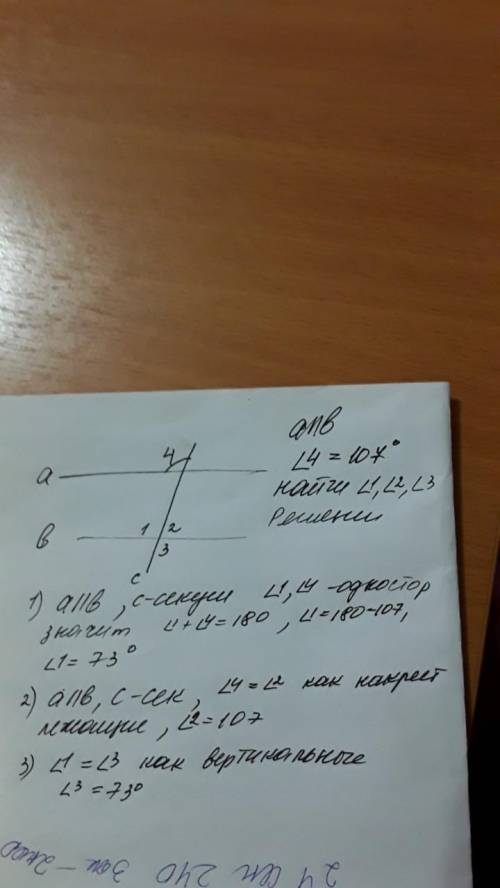 a||b
∠4 = 107°
найти ∠1, ∠2, ∠3
Решение
4
a
1 2
b
3
c
1) a||b, c-секущ ∠1, ∠4 - одностор
значит ∠1+∠4=180, ∠1=180-107,
∠1=73°
2) a||b, c-сек, ∠4=∠2 как накрест
лежащие, ∠2=107
3) ∠1=∠3 как вертикальные
∠3=73°
24 240